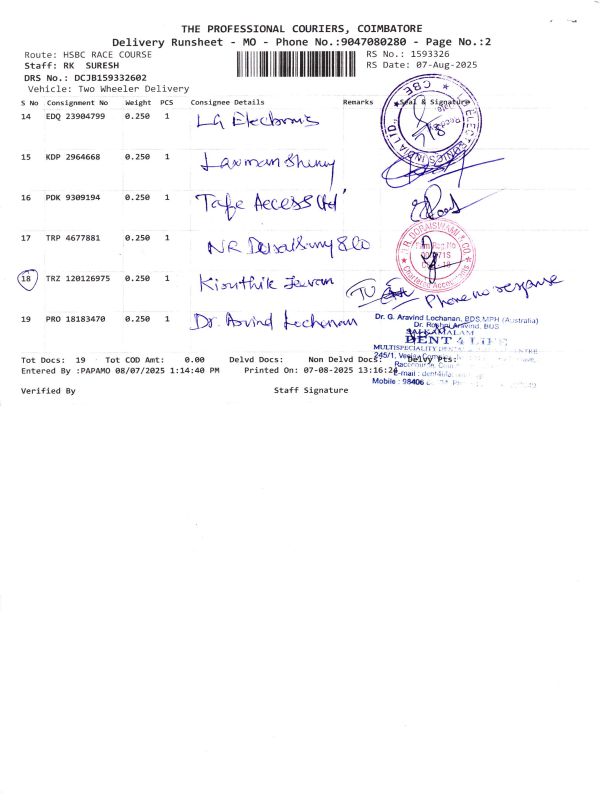 THE PROFESSIONAL COURIERS, COIMBATORE
Delivery Runsheet - MO - Phone No.:9047080280 - Page No.:2
Route: HSBC RACE COURSE RS No.: 1593326
Staff: RK SURESH RS Date: 07-Aug-2025
DRS No.: DCJB159332602
Vehicle: Two Wheeler Delivery
S No Consignment No Weight PCS Consignee Details Remarks Seal & Signature
14 EDQ 23904799 0.250 1 LG Electronis
15 KDP 2964668 0.250 1 Laxman
16 PDK 9309194 0.250 1 Tafe Access Ltd
17 TRP 4677881 0.250 1 NR & Co
18 TRZ 120126975 0.250 1 Phone no response
19 PRO 18183470 0.250 1 Dr. Arvind Lochanan
Dr. G. Aravind Lochanan, BDS,MPH (Australia)
Dr. Roshni Aravind, BDS
DENT 4 LIFE
MULTISPECIALITY
245/1,
Mobile : 98406
Tot Docs: 19 Tot COD Amt: 0.00 Delvd Docs: Non Delvd Docs: Delvy Pts:
Entered By :PAPAMO 08/07/2025 1:14:40 PM Printed On: 07-08-2025 13:16:24
Verified By Staff Signature